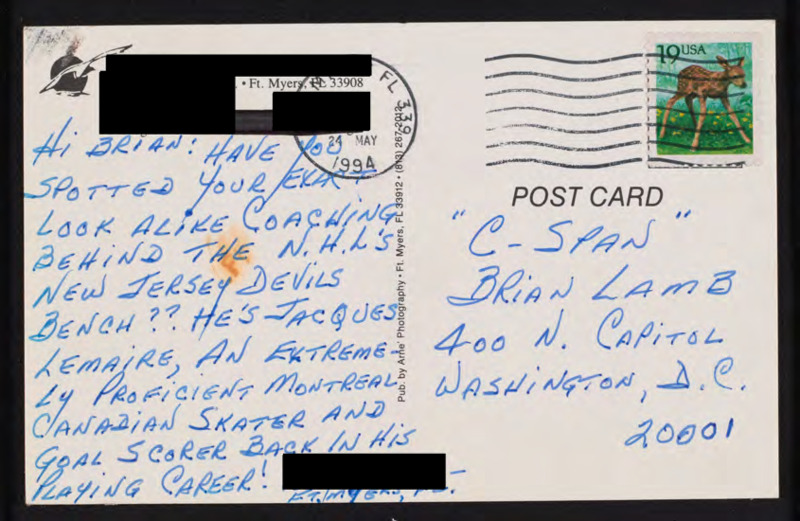 • Ft. Myers, FL 33908
FL 339
24 MAY
1994
Hi BRIAN: HAVE YOU
SPOTTED YOUR EXACT
LOOK ALIKE COACHING
BEHIND THE N.H.L'S
NEW JERSEY DEVILS
BENCH?? HE'S JACQUES
LEMAIRE, AN EXTREME-
LY PROFICIENT MONTREAL
CANADIAN SKATER AND
GOAL SCORER BACK IN HIS
PLAYING CAREER!
FT. MYERS, FL.
Pub. by Arne' Photography • Ft. Myers, FL 33912 • (813) 267-2012
19 USA
POST CARD
"C-SPAN"
BRIAN LAMB
400 N. CAPITOL
WASHINGTON, D.C.
20001